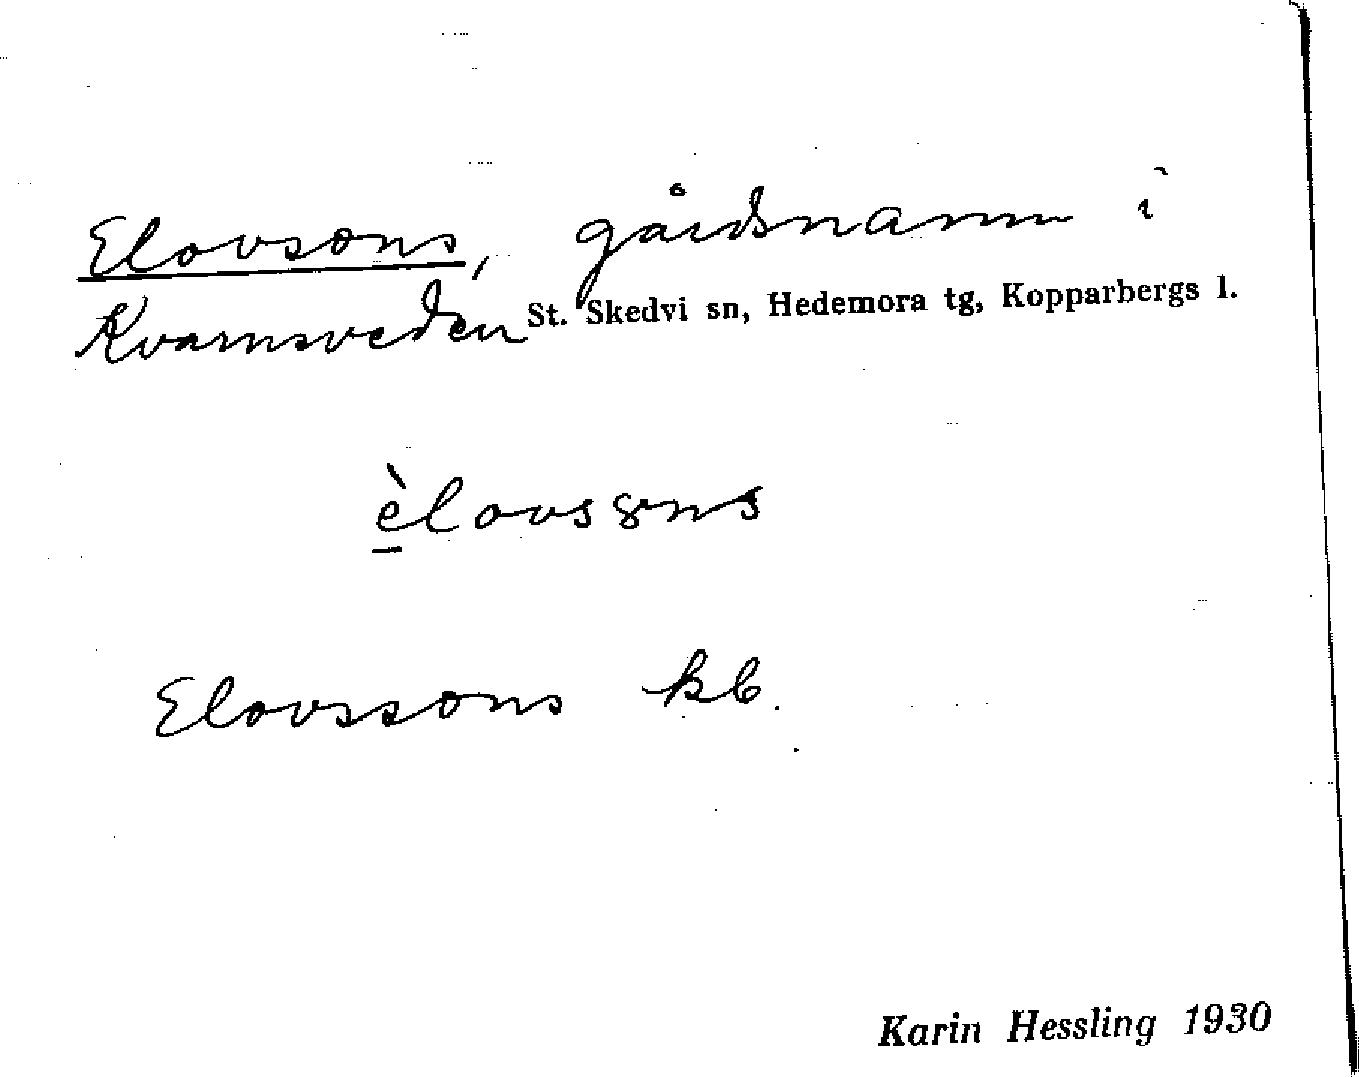 Elovsons, gårdsnamn i
Kvarnsveden St. Skedvi sn, Hedemora tg, Kopparbergs l.
èlovssons
Elovssons kb.
Karin Hessling 1930